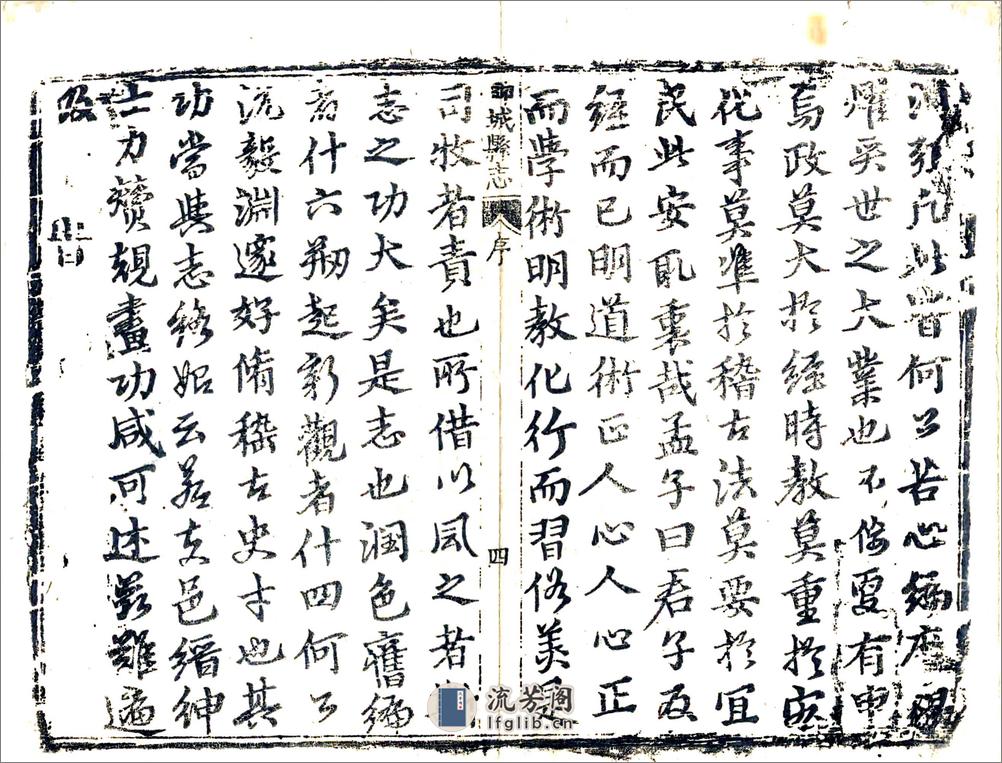 凡此皆何公苦心編摩
燿奕世之大業也不佞夏有申
焉政莫大於經時教莫重於宏
化事莫準於稽古法莫要於宜
民此安取衷哉孟子曰君子反
經而已明道術正人心人心正
而學術明教化行而習俗美
郾城縣志
序
四
司牧者責也所借以風之者
志之功大矣是志也潤色舊編
者什六刱起新觀者什四何公
沉毅淵邃好脩稽古史才也其
功當與志終始云若夫邑縉紳
士力贊兢畫功咸可述難遍
流芳阁
lfglib.cn